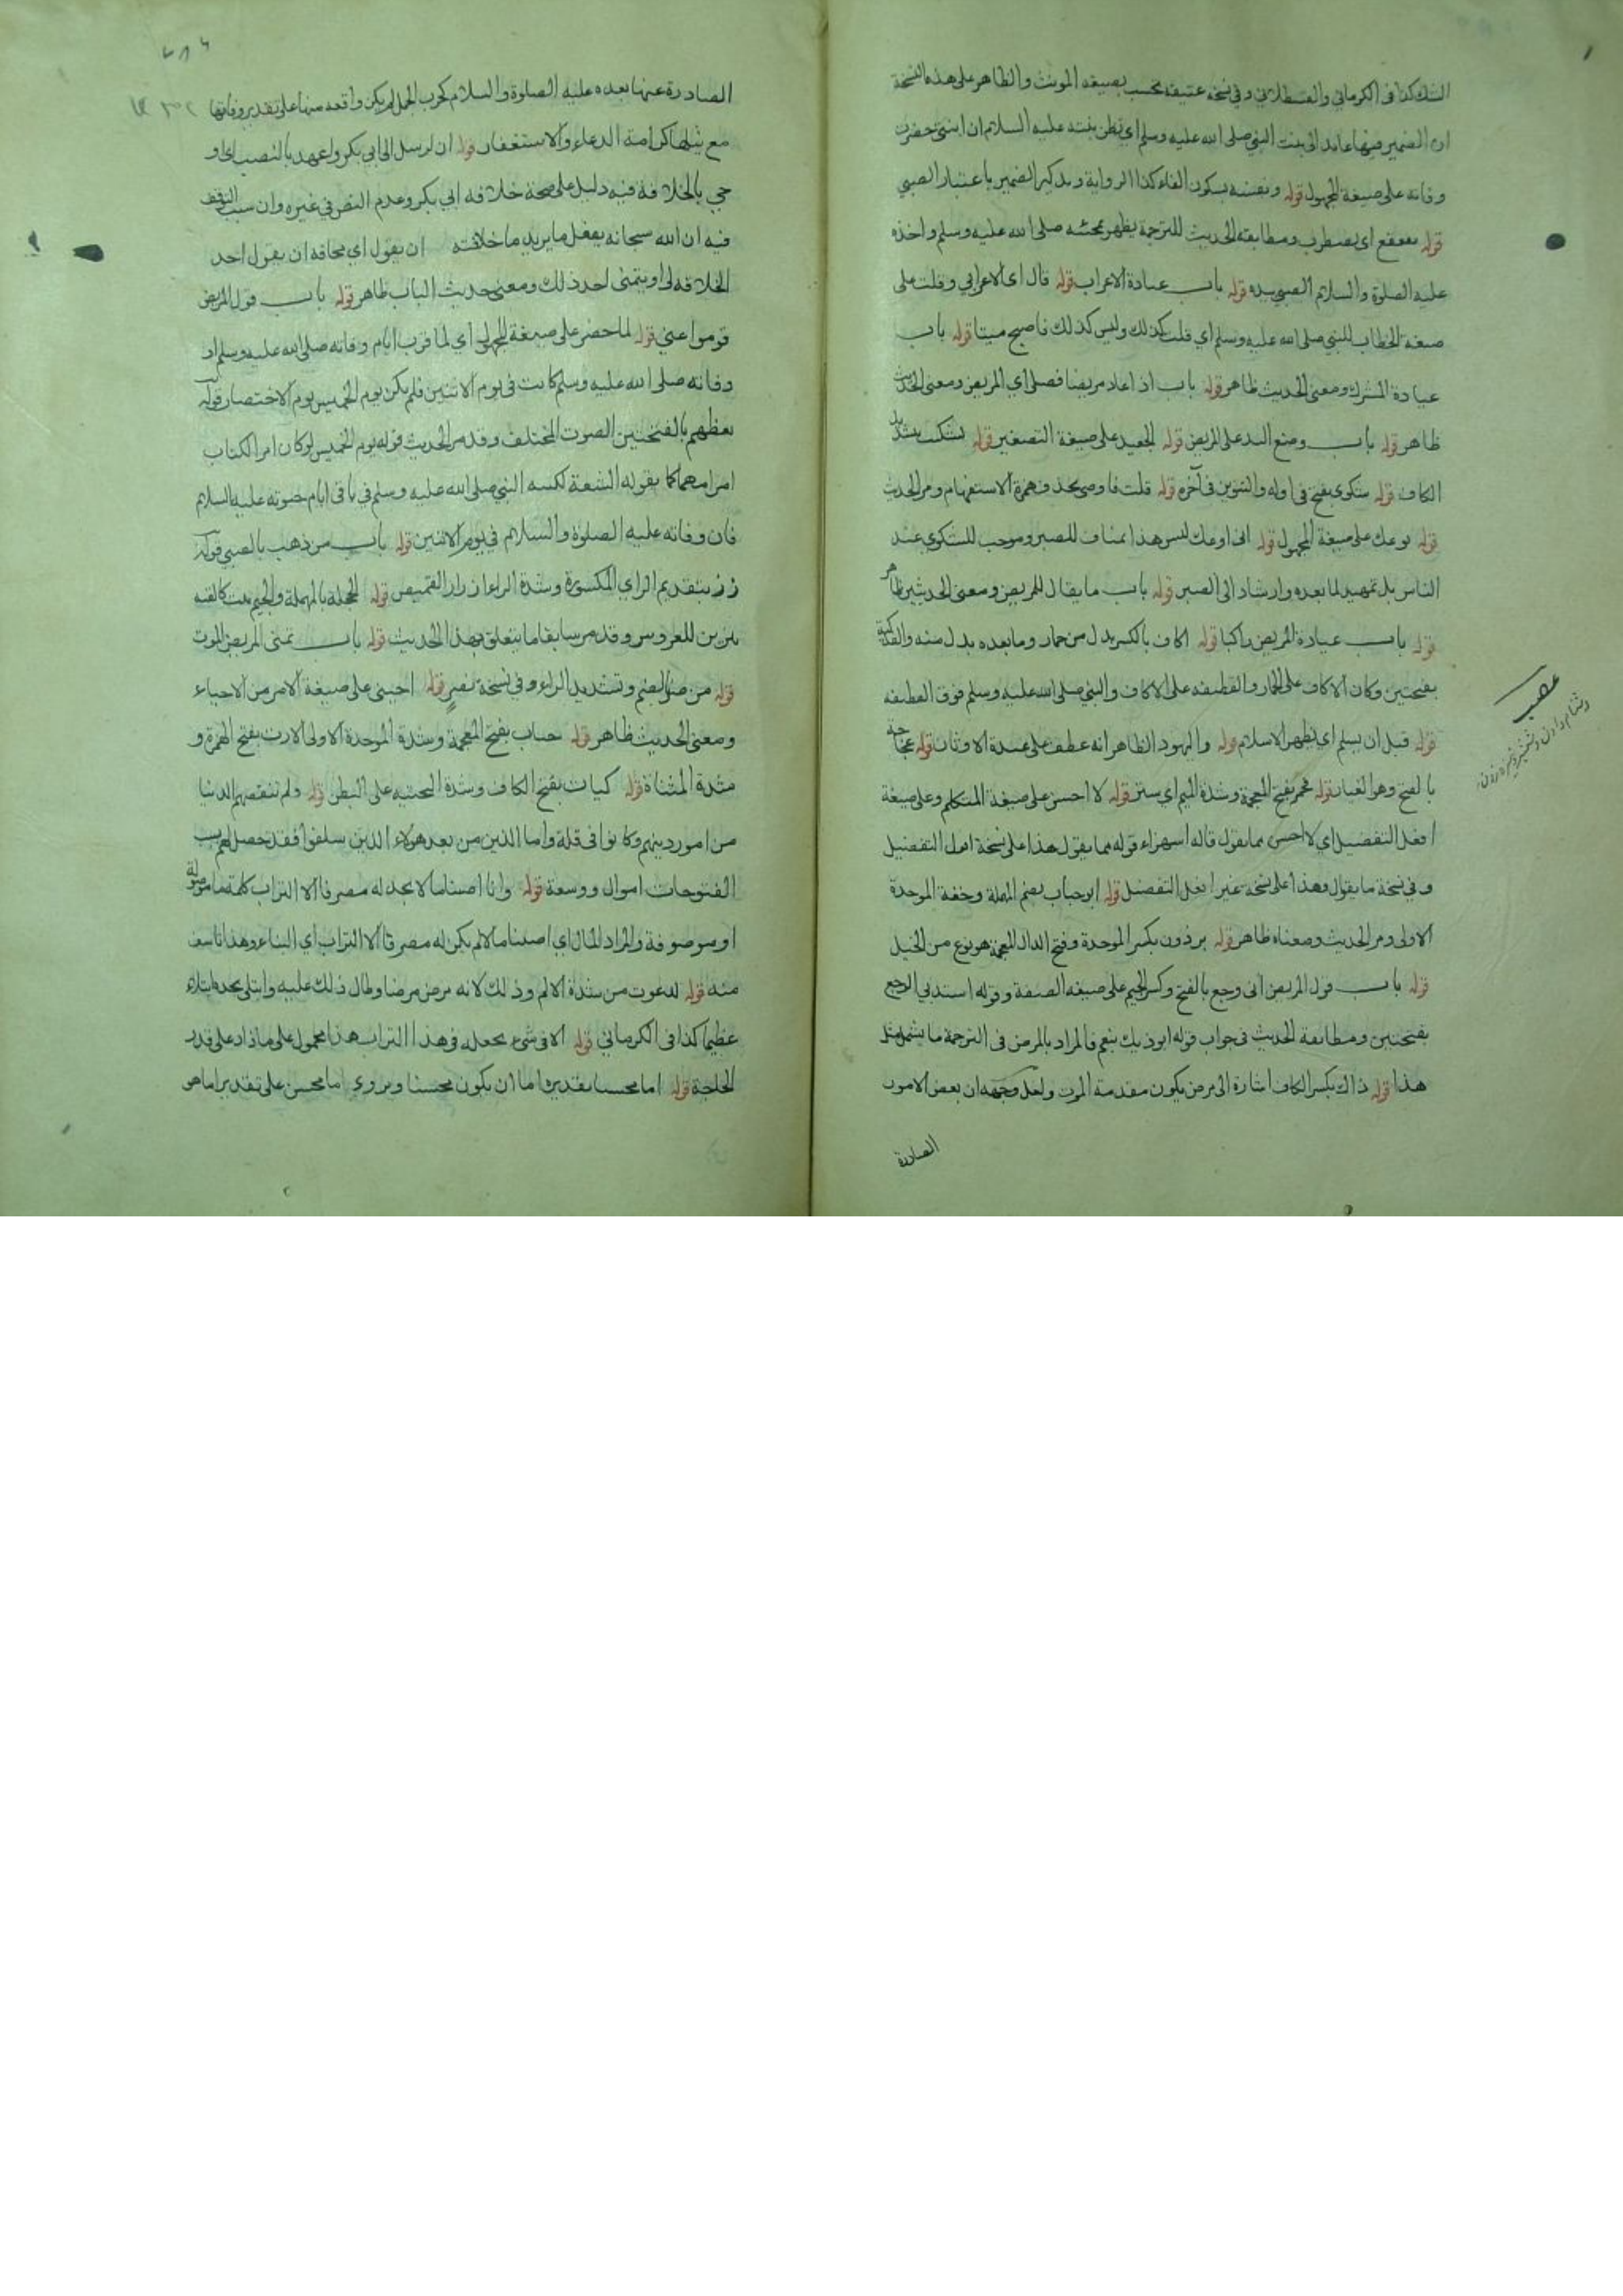 الشك كذا في الكرماني والقسطلاني وفي نسخة عتيقة تحسب بصيغة المونث والظاهر على هذه النسخة
ان الضمير فيها عائد الى بنت النبي صلى الله عليه وسلم اي تظن بنته عليه السلام ان ابنتي حضرت
وفاته على صيغة المجهول قوله ونفسه بسكون الفاء كذا الرواية وتذكير الضمير باعتبار الصبي
قوله تقعقع اي تضطرب ومطابقة الحديث للترجمة يظهر بمجيئه صلى الله عليه وسلم واخذه
عليه الصلوة والسلام الصبي بيده قوله باب عيادة الاعراب قوله قال اي الاعرابي وقلت على
صيغة الخطاب للنبي صلى الله عليه وسلم اي قلت كذلك وليس كذلك فاصبح ميتا قوله باب
عيادة المشرك ومعنى الحديث ظاهر قوله باب اذا عاد مريضا فصلى اي المريض ومعنى الحديث
ظاهر قوله باب وضع اليد على المريض قوله الجعيد على صيغة التصغير قوله تشكيت بتشديد
الكاف قوله شكوى بفتح في اوله والتنوين في آخره قوله قلت فاوصي بحذف همزة الاستفهام ومر الحديث
قوله يوعك على صيغة المجهول قوله اني اوعك ليس هذا بمناف للصبر وموجب للشكوى عند
الناس بل تمهيد لما بعده وارشاد الى الصبر قوله باب ما يقال للمريض ومعنى الحديثين ظاهر
قوله باب عيادة المريض راكبا قوله اكاف بالكسر بدل من حمار وما بعده بدل منه والفدكية
بفتحتين وكان الاكاف على الحمار والقطيفة على الاكاف والنبي صلى الله عليه وسلم فوق القطيفة
قوله قبل ان يسلم اي يظهر الاسلام قوله واليهود الظاهر انه عطف على عبدة الاوثان قوله عجاجة
بالفتح وهو الغبار قوله خمر بفتح المعجمة وشدة الميم اي ستر قوله لا احسن على صيغة المتكلم وعلى صيغة
افعل التفضيل اي لا احسن مما تقول قاله استهزاء قوله مما تقول هذا على نسخة افعل التفضيل
وفي نسخة ما يقول وهذا على نسخة غير افعل التفضيل قوله ابو حباب بضم المهملة وخفة الموحدة
الاولى ومر الحديث ومعناه ظاهر قوله برذون بكسر الموحدة وفتح الدال المعجمة هو نوع من الخيل
قوله باب قول المريض اني وجع بالفتح وكسر الجيم على صيغة الصفة وقوله اشتد بي الوجع
بفتحتين ومطابقة الحديث في جواب قوله ايوذيك بنعم فالمراد بالمرض في الترجمة ما يشمل مثل
هذا قوله ذاك بكسر الكاف اشارة الى مرض يكون مقدمة الموت ولعل وجهه ان بعض الامور
الصادرة
الصادرة عنها بعده عليه الصلوة والسلام كحرب الجمل لم يكن واقعه منها على تقدير وفاتها
مع نيلها كرامة الدعاء والاستغفار قوله ان ارسل الى ابي بكر واعهد بالنصب اي او
حي بالخلافة فيه دليل على صحة خلافة ابي بكر وعدم النص في غيره وان سبب التوقف
فيه ان الله سبحانه يفعل ما يريد ما خلافته ان يقول اي مخافة ان يقول احد
الخلافة لي او يتمنى احد ذلك ومعنى حديث الباب ظاهر قوله باب قول المريض
قوموا عني قوله لما حضر على صيغة المجهول اي لما قرب ايام وفاته صلى الله عليه وسلم اذ
وفاته صلى الله عليه وسلم كانت في يوم الاثنين فلم يكن يوم الخميس يوم الاحتضار قوله
لغطهم بالفتحتين الصوت المختلف وقد مر الحديث قوله يوم الخميس لو كان امر الكتاب
امرا مهما كما يقوله الشيعة لكتبه النبي صلى الله عليه وسلم في باقي ايام حيوته عليه السلام
فان وفاته عليه الصلوة والسلام في يوم الاثنين قوله باب من ذهب بالصبي قوله
زر بتقديم الزاي المكسورة وشدة الراء ازرار القميص قوله الحجلة بالمهملة والجيم بيت كالقبة
يزين للعروس وقد مر سابقا ما يتعلق بهذا الحديث قوله باب تمنى المريض الموت
قوله من ضر بالضم وتشديد الراء وفي نسخة بضر قوله احيني على صيغة الامر من الاحياء
ومعنى الحديث ظاهر قوله خباب بفتح المعجمة وشدة الموحدة الاولى الارت بفتح الهمزة و
شدة المثناة قوله كيات بفتح الكاف وشدة التحتية على البطن قوله ولم تنقصهم الدنيا
من امور دينهم وكانوا في قلة واما الذين من بعد هؤلاء الذين سلفوا فقد حصل لهم بسبب
الفتوحات اموال ووسعة قوله وانا اصبنا ما لا نجد له مصرفا الا التراب كلمة ما موصولة
او موصوفة والمراد المال اي اصبنا مالا لم يكن له مصرفا الا التراب اي البناء وهذا تاسف
منه قوله لدعوت من شدة الالم وذلك لانه مرض مرضا وطال ذلك عليه وابتلى بجسده ابتلاء
عظيما كذا في الكرماني قوله الا في شيء يجعله في هذا التراب هذا محمول على ما زاد على قدر
الحاجة قوله اما محسنا تقديره اما ان يكون محسنا ويروي اما محسن على تقدير اما هو